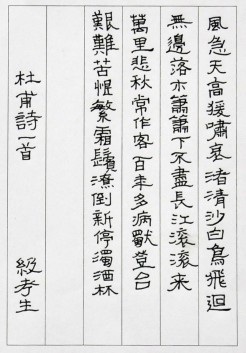 風急天高猨嘯哀渚清沙白鳥飛迴
無邊落木蕭蕭下不盡長江滾滾来
萬里悲秋常作客百年多病獨登台
艱難苦恨繁霜鬢潦倒新停濁酒杯
杜甫詩一首 級考生